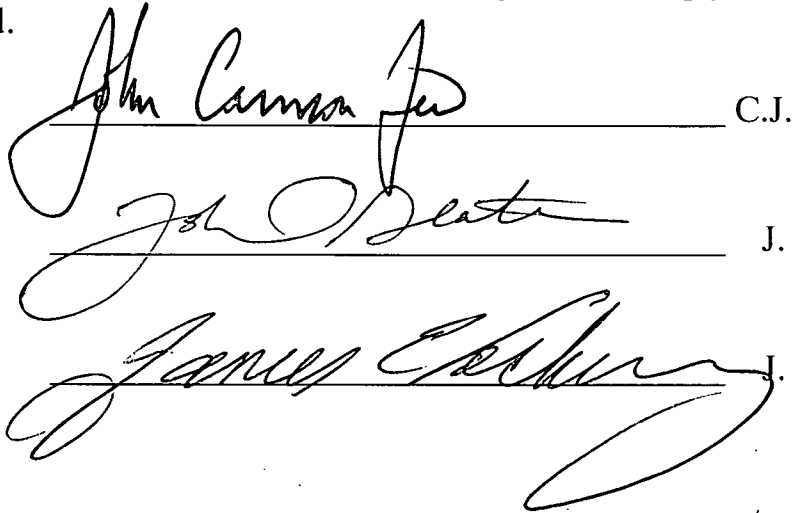 d.
John Cannon Few C.J.
John D. Geathers J.
James E. Lockemy J.